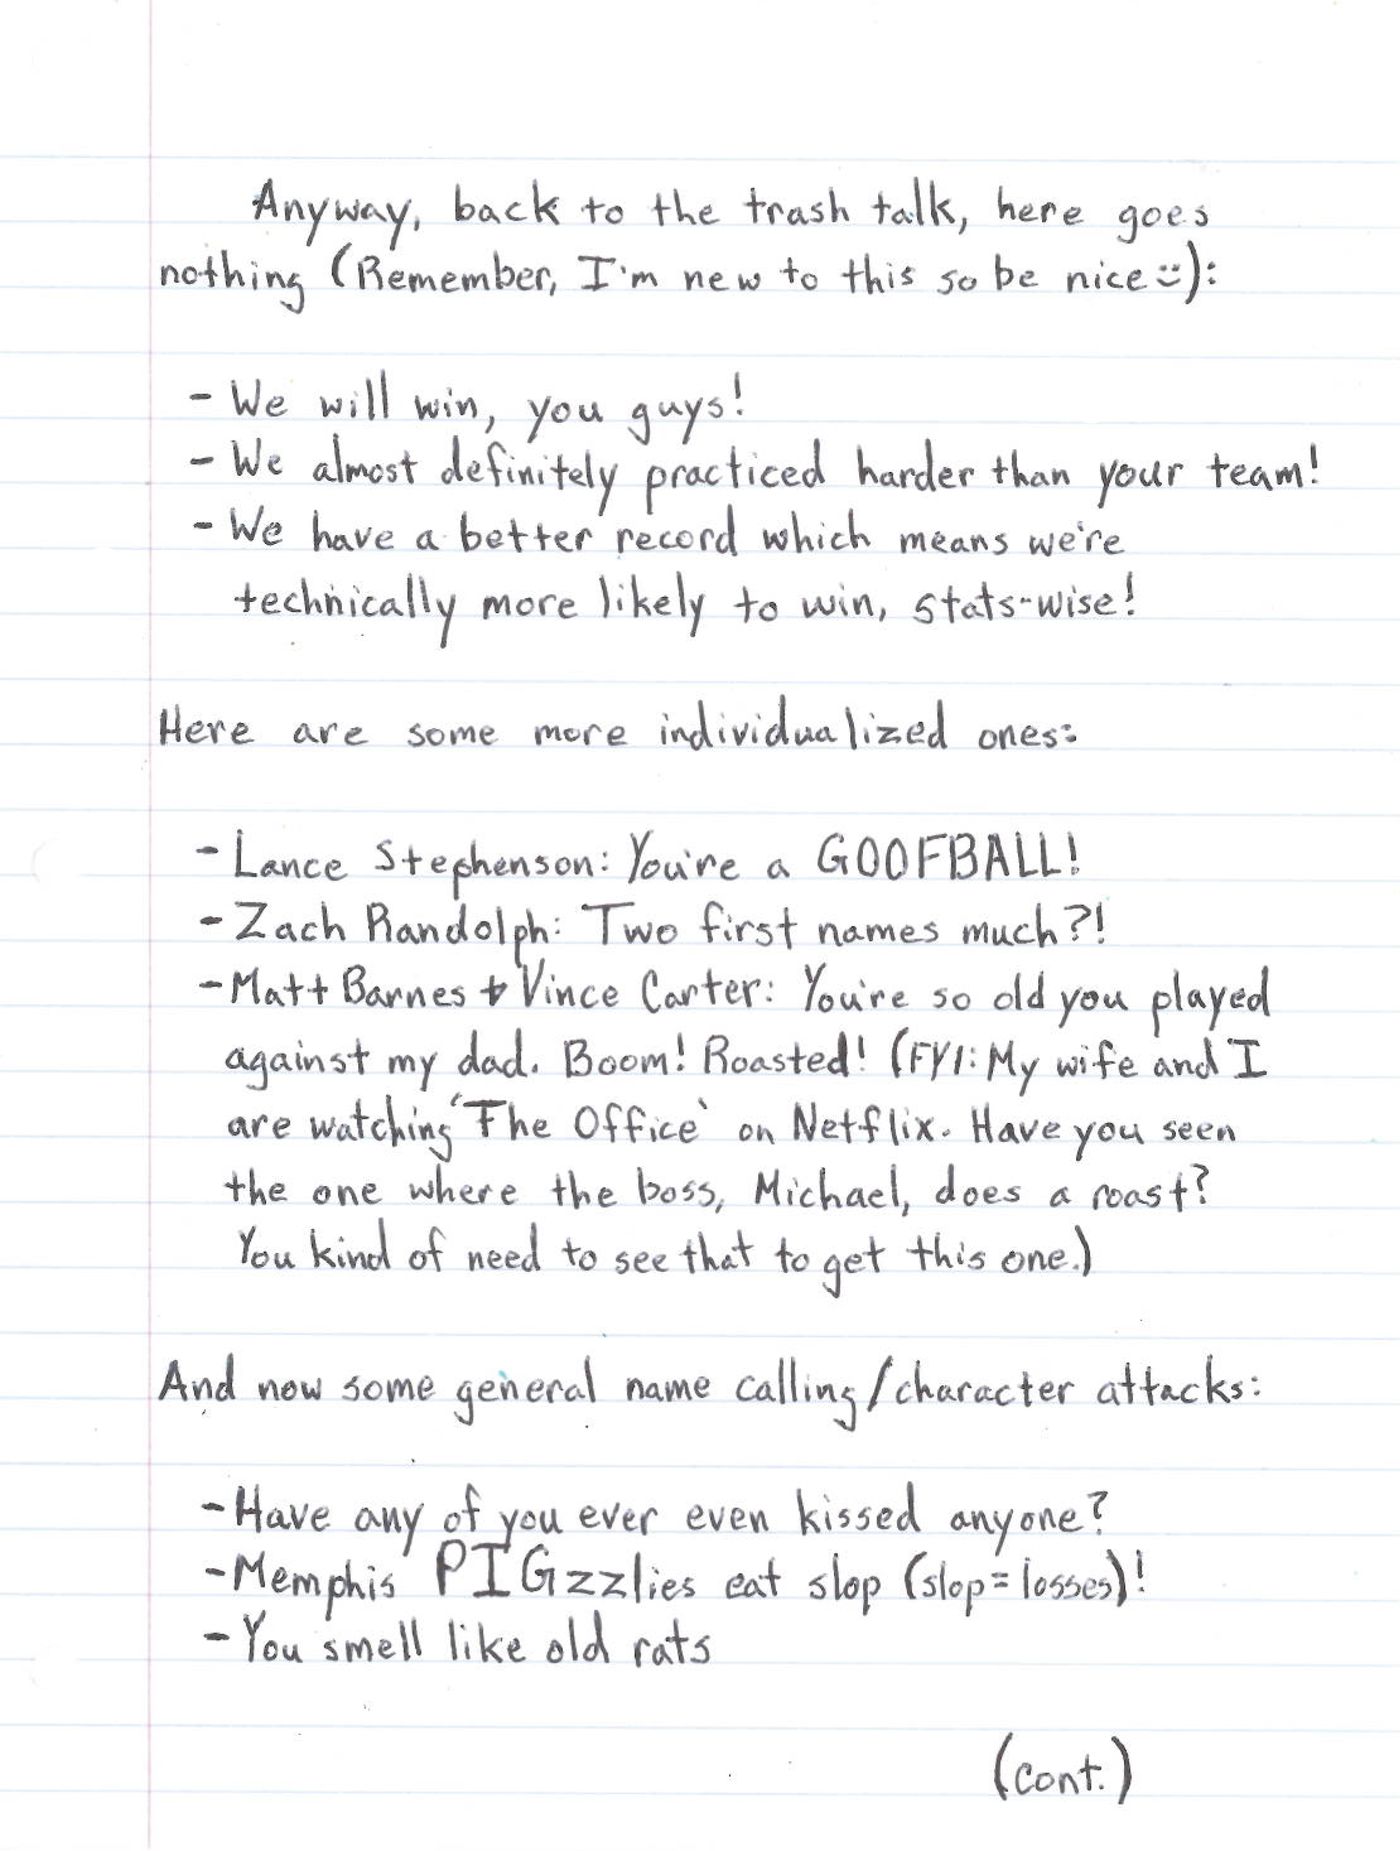 Anyway, back to the trash talk, here goes
nothing (Remember, I'm new to this so be nice :)):
- We will win, you guys!
- We almost definitely practiced harder than your team!
- We have a better record which means we're
technically more likely to win, stats-wise!
Here are some more individualized ones:
- Lance Stephenson: You're a GOOFBALL!
- Zach Randolph: Two first names much?!
- Matt Barnes + Vince Carter: You're so old you played
against my dad. Boom! Roasted! (FYI: My wife and I
are watching 'The Office' on Netflix. Have you seen
the one where the boss, Michael, does a roast?
You kind of need to see that to get this one.)
And now some general name calling/character attacks:
- Have any of you ever even kissed anyone?
- Memphis PIGzzlies eat slop (slop=losses)!
- You smell like old rats
(cont.)